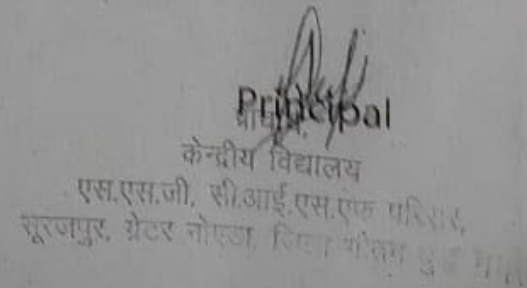 Principal
प्राचार्य
केन्द्रीय विद्यालय
एस.एस.जी, सी.आई.एस.एफ परिसर,
सूरजपुर, ग्रेटर नोएडा, जिला गौतम बुद्ध